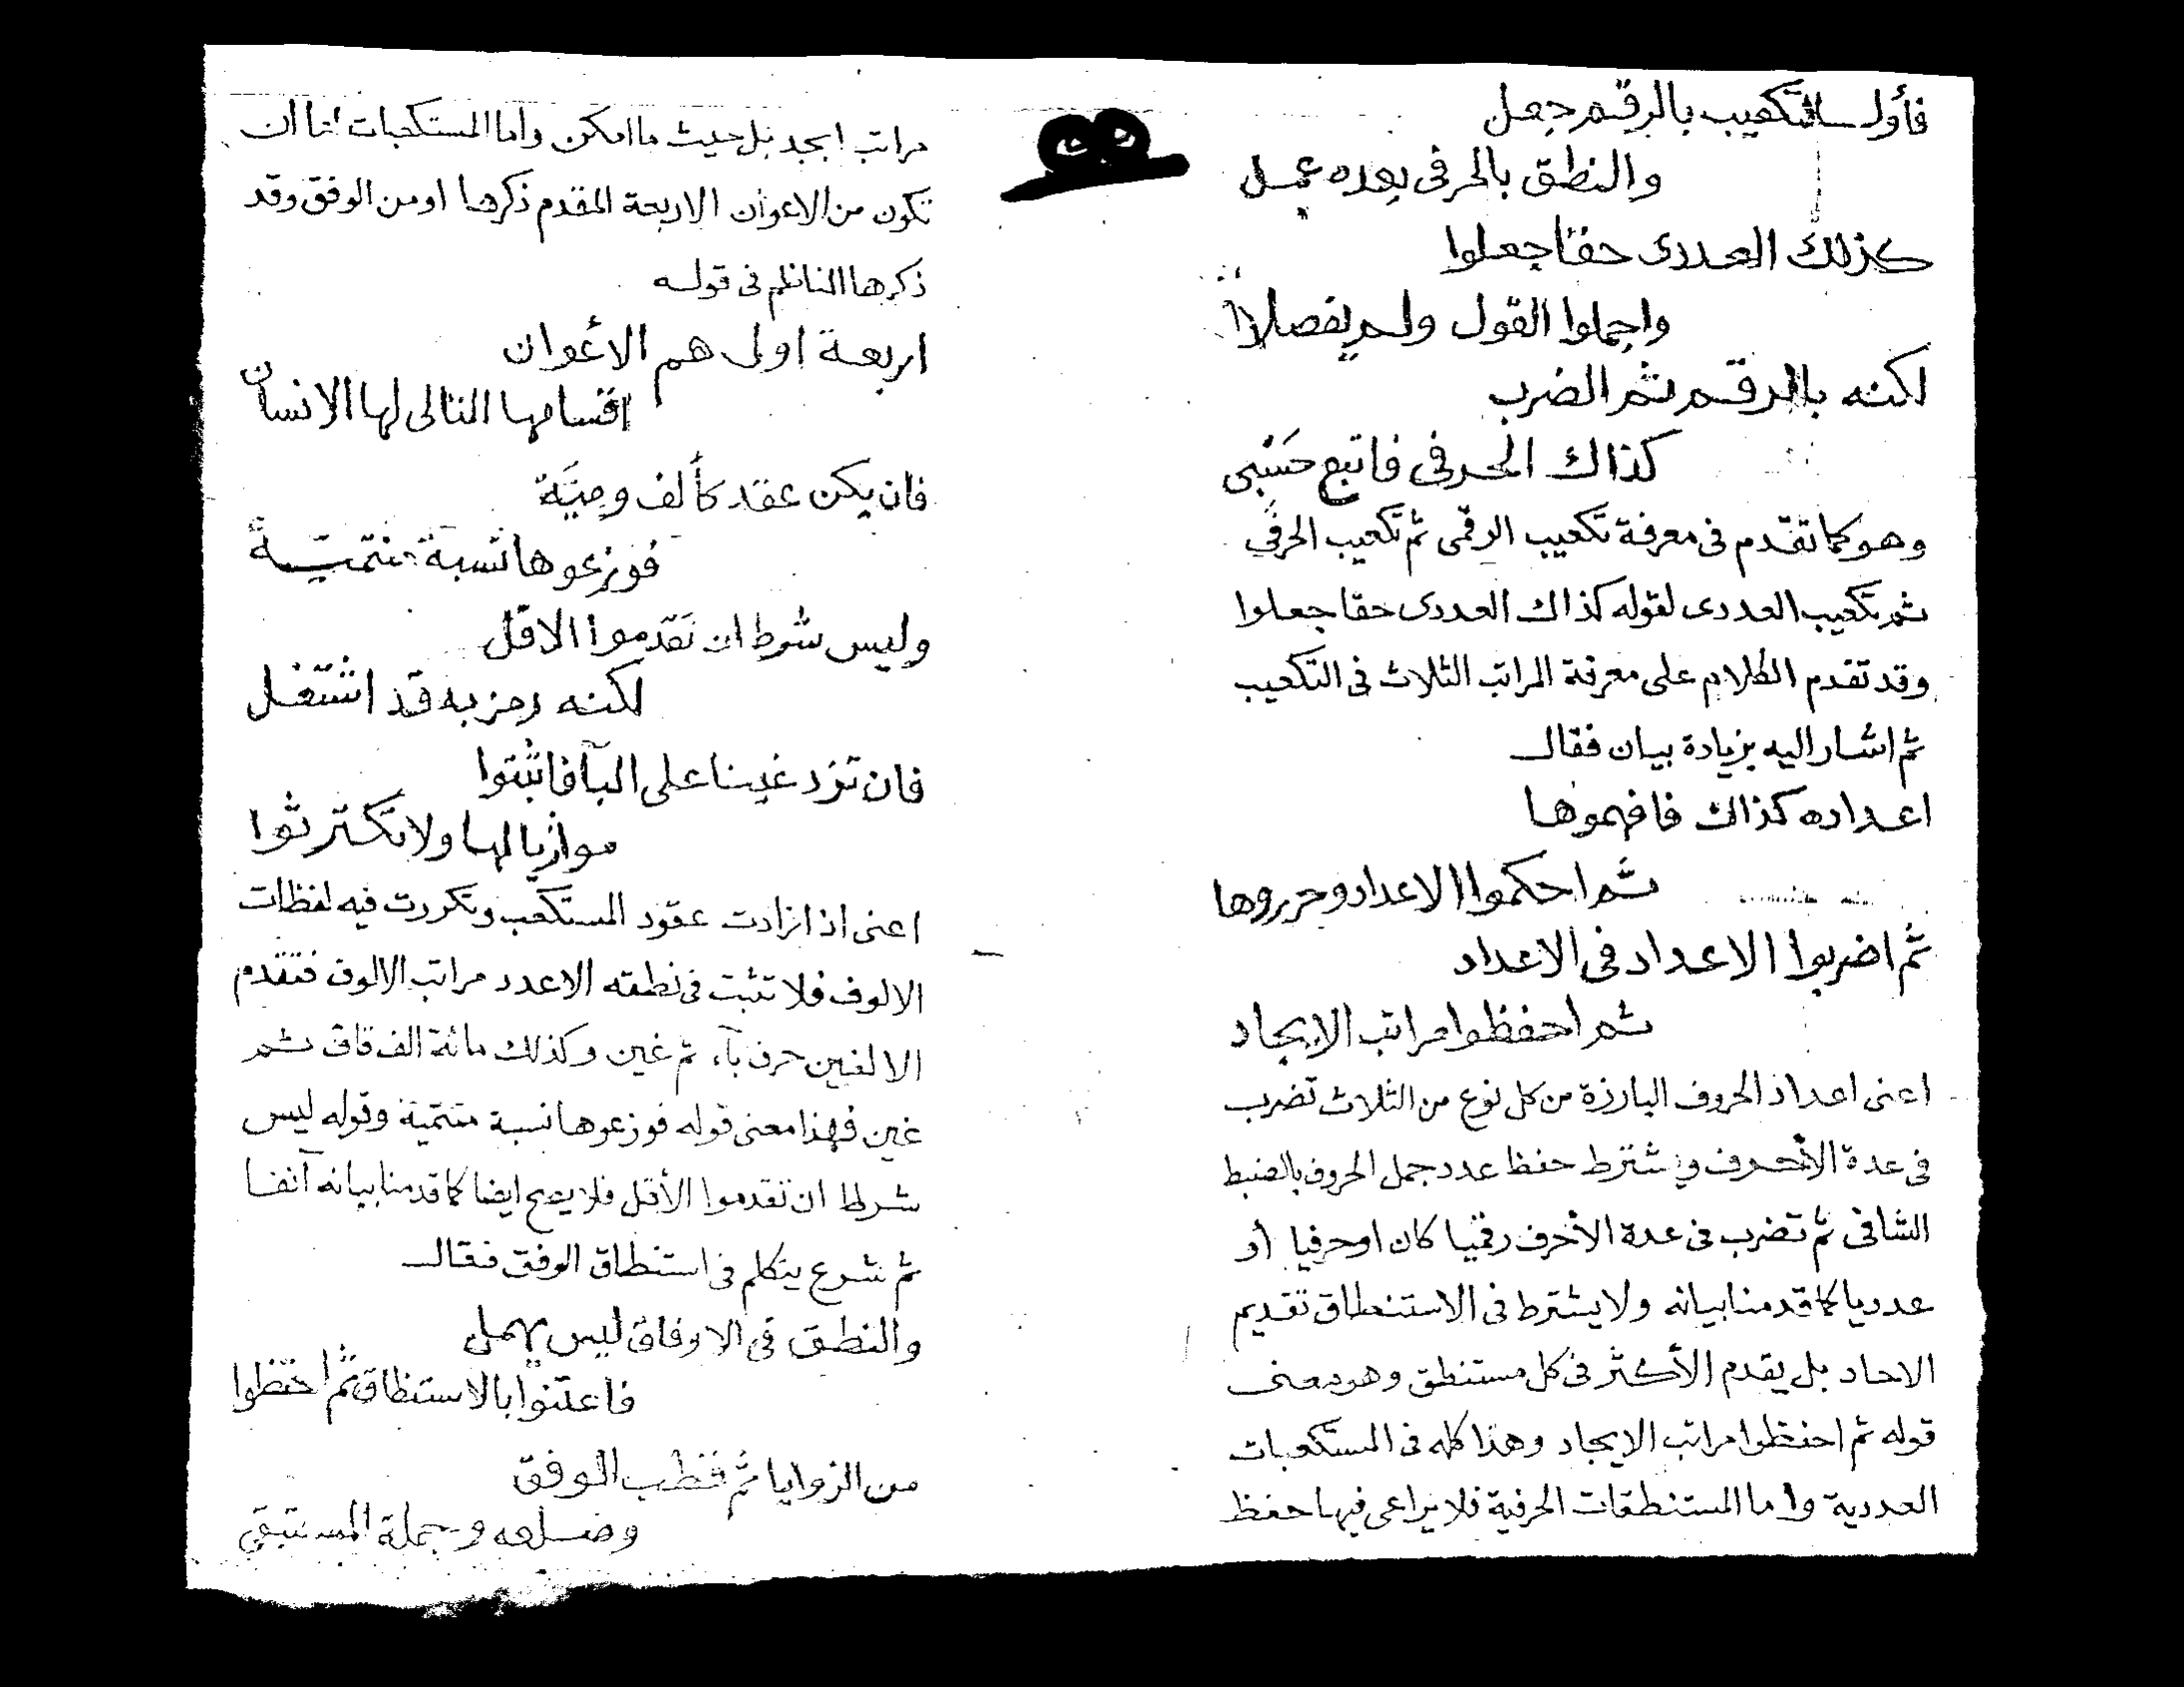 فأول التكعيب بالرقم جعل
والنطق بالحرفى بعده عمل
كذلك العددى حقا جعلوا
واجملوا القول ولم يفصلوا
لكنه بالرقم ثم الضرب
كذاك الحرفى فاتبع حَسْبى
وهو كما تقدم فى معرفة تكعيب الرقمى ثم تكعيب الحرفي
ثم تكعيب العددى لقوله كذاك العددى حقا جعلوا
وقد تقدم الكلام على معرفة المراتب الثلاث فى التكعيب
ثم اشار اليه بزيادة بيان فقال
اعداده كذاك فافهموها
ثم احكموا الاعداد وحرروها
ثم اضربوا الاعداد فى الاعداد
ثم احفظوا مراتب الايجاد
اعنى اعداد الحروف البارزة من كل نوع من الثلاث تضرب
فى عدة الأحرف ويشترط حفظ عدد جمل الحروف بالضبط
الشافى ثم تضرب فى عدة الأحرف رقميا كان اوحرفيا أو
عدديا كما قدمنا بيانه ولا يشترط فى الاستنطاق تقديم
الاحاد بل يقدم الأكثر فى كل مستنطق وهو معنى
قوله ثم احفظوا مراتب الايجاد وهذا كله فى المستكعبات
العددية واما المستنطقات الحرفية فلا يراعى فيها حفظ
مراتب ابجد بل حيث ما امكن واما المستكعبات اما ان
تكون من الاعوان الاربعة المقدم ذكرها او من الوفق وقد
ذكرها الناظم فى قوله
اربعة اولى هم الأعوان
اقسامها التالى لها الانسان
فان يكن عقد كألف ومِيَة
فوزعوها نسبة منتميةً
وليس شرط ان تَقدموا الاقل
لكنه رمز به قد اشتغل
فان تزد غينا على البآ فاثبتوا
موازيا لها ولا تكترثوا
اعنى اذا زادت عقود المستكعب وتكررت فيه لفظات
الالوف فلا تثبت فى نطقه الا عدد مراتب الالوف فتقدم
الالفين حرف بآء ثم غين وكذلك مائة الف قاف ثم
غين فهذا معنى قوله فوزعوها نسبة منتمية وقوله ليس
شرط ان تقدموا الأقل فلا يصح ايضا كما قدمنا بيانه آنفا
ثم شرع يتكلم فى استنطاق الوفق فقال
والنطق فى الاوفاق ليس يهمل
فاعتنوا بالاستنطاق ثم احفظوا
من الزوايا ثم قطب الوفق
وضلعه وجملة المستبقي